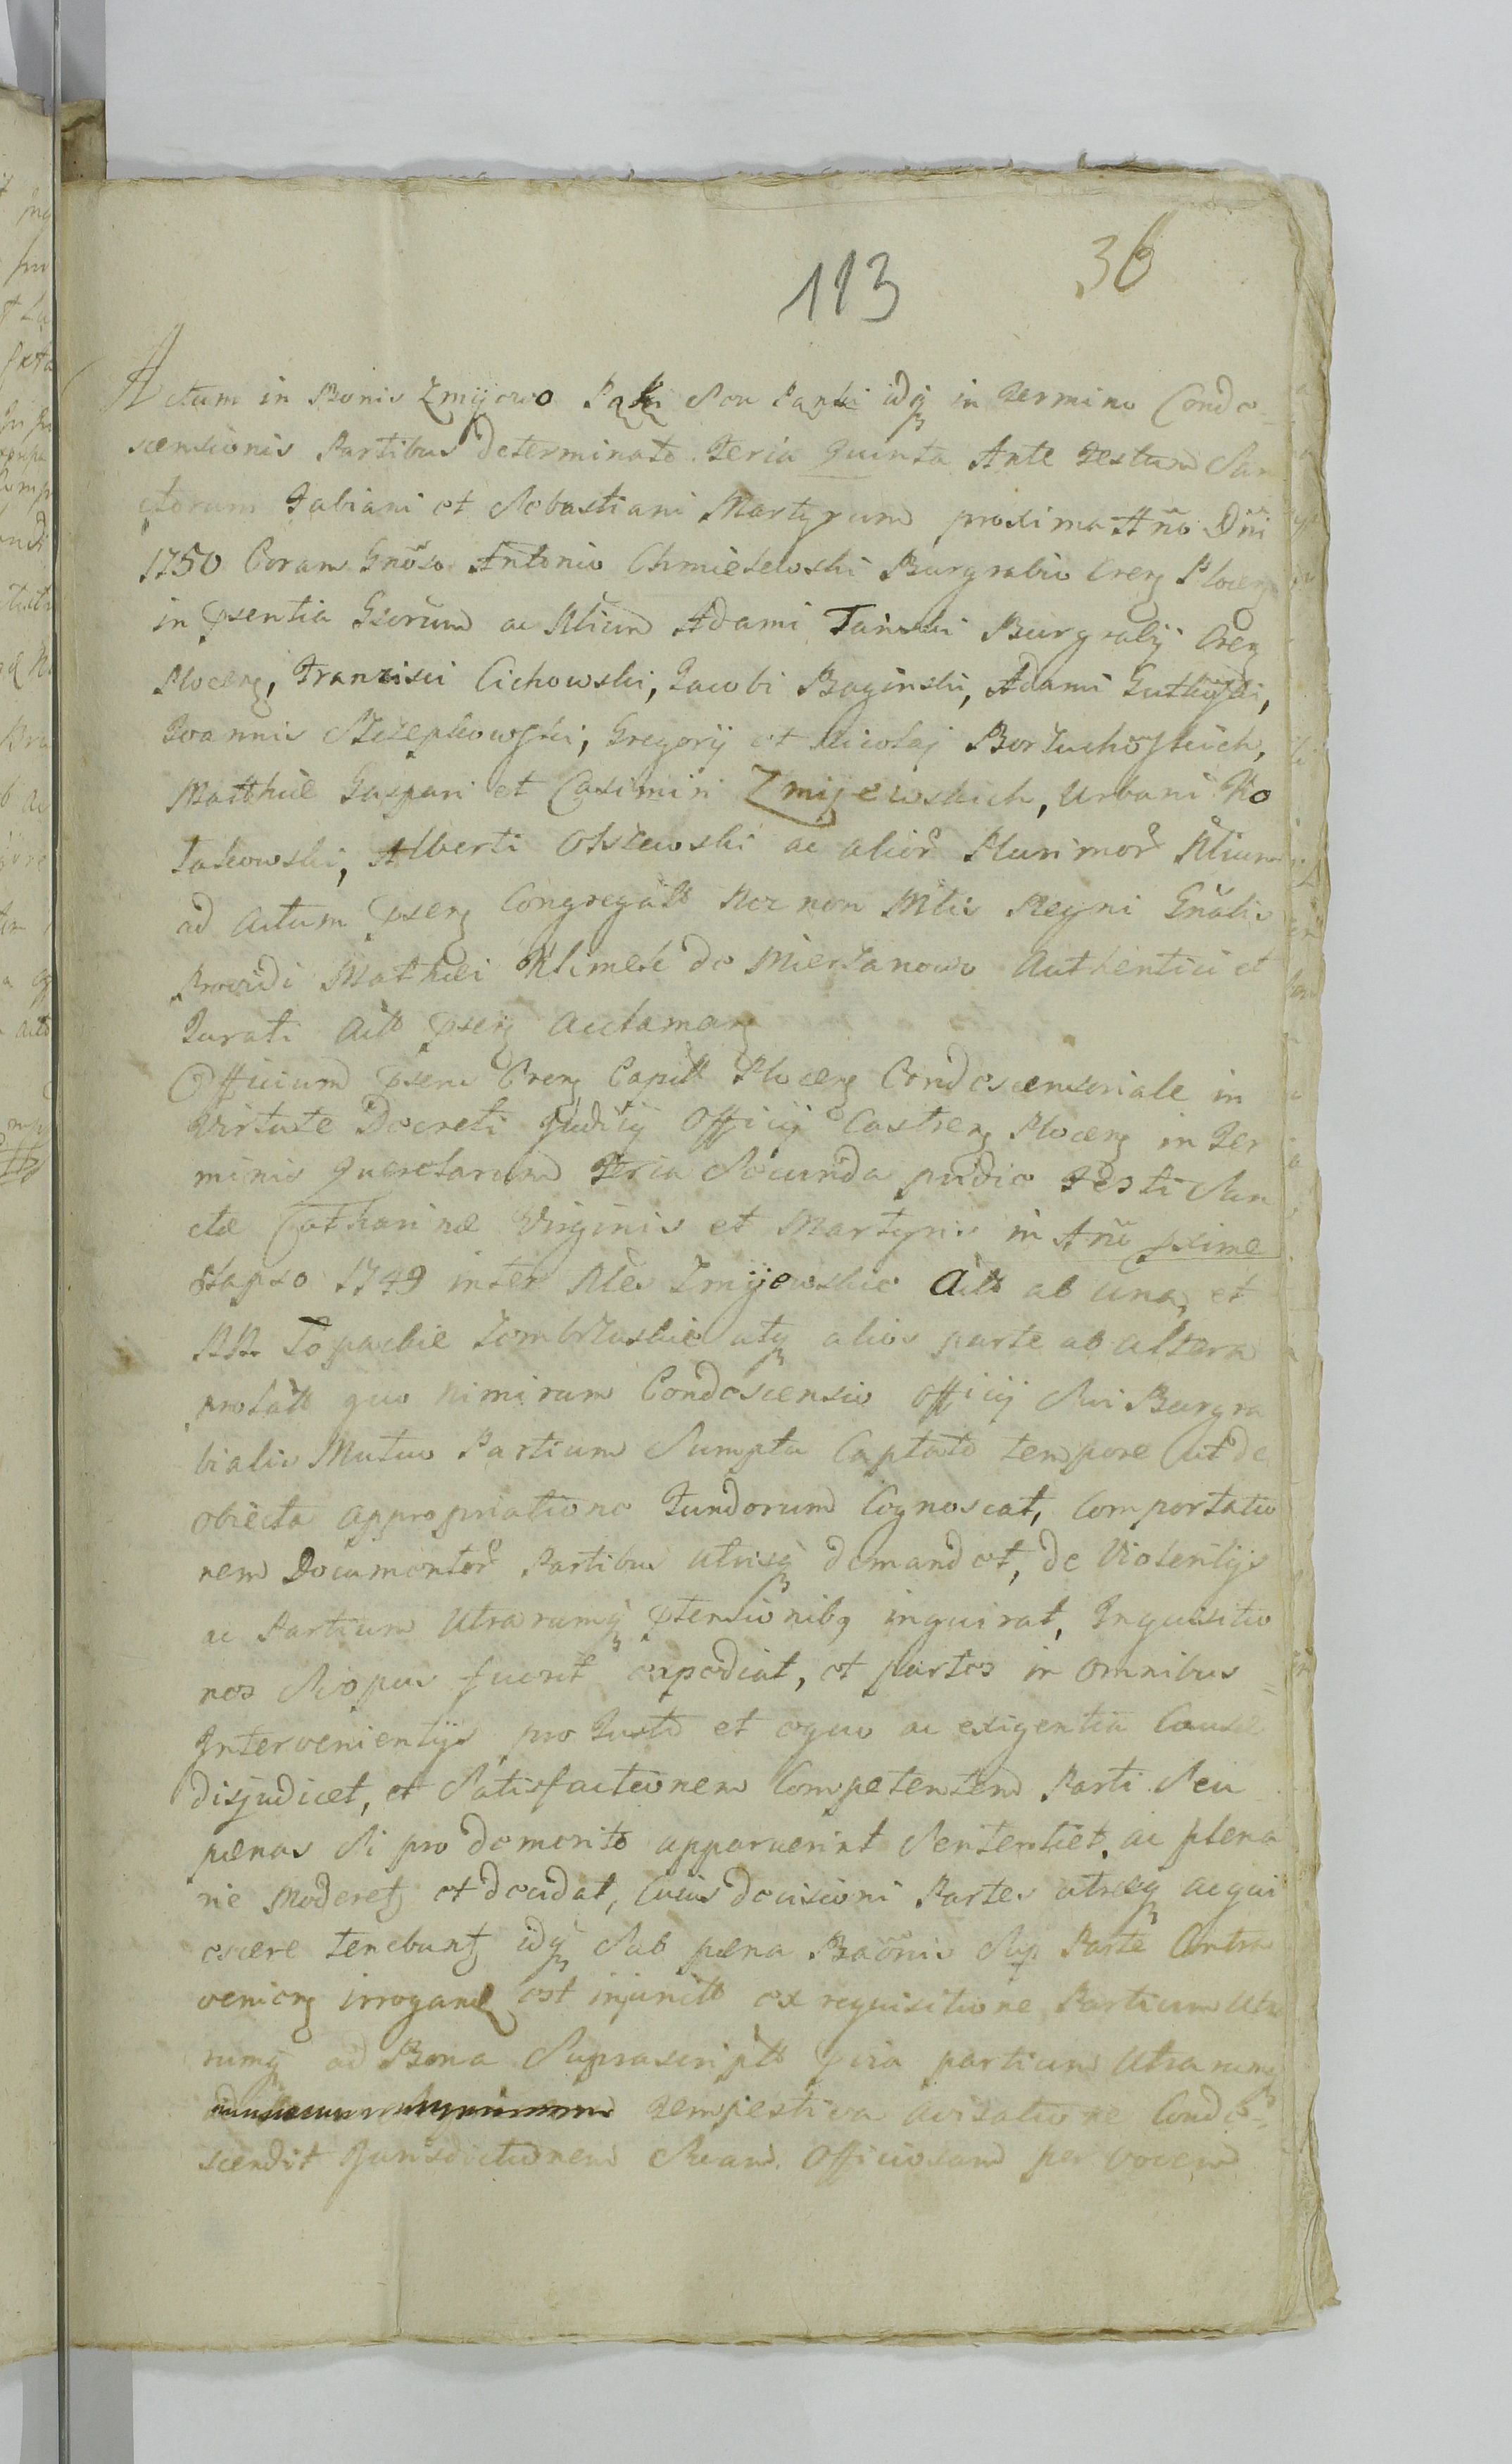 113 36
Actum in Bonis Zmijewo Pąki Seu Pąpki idq in Termino Conde
scensionis Partibus determinato Feria Quinta Ante Festum San
ctorum Fabiani et Sebastiani Martyrum proxima Año Dñi
1750 Coram Gnöso Antonio Chmielewski Burgrabio Creñ Plocen
in psentia Gsorum ac Nlium Adami Tański Burgrabij Cren
Plocen, Francisci Cichowski, Jacobi Baginski, Adami Gutkowski,
Joannis Szczepkowski, Gregorij et Nicolaj Borzuchowskich,
Matthiæ Gaspari et Casimiri Zmijewskich, Urbani Ko
sakowski, Alberti Olszewski ac alior Plurimor Nlium
ad Actum psen Congregatt Nec non Mtis Regni Gnalis
Providi Mathæi Klimek de Mierzanowo Authentici et
Jurati Actt psen acclaman
Officium psens Cren Capitt Plocen Condescensoriale in
Virtute Decreti Judicij Officij Castren Plocen in Ter
minis Querelarum Feria Secunda pridie Festi San
ctæ Catharinæ Virginis et Martyris in Año pxime
Elapso 1749 inter Nles Zmijewskie Actt ab una, et
NN. Łopackie Zombrzuskie atq alios parte ab altera
prolatt quo nimirum Condescensio officij Sui Burgra
bialis Mutuo Partium Sumptu Captato tempore ut de
obiecta appropriatione Fundorum Cognoscat, Comportatio
nem Documentor Partibus utrisq demandet, de Violentijs
ac Partium Utrarumq ptensionibq inquirat, Inquisitio
nes Si opus fuerit expediat, et partes in omnibus
Intervenientijs pro Justo et equo ac exigentia Causæ
disjudicet, et Satisfactionem Competentem Parti Seu
pænas Si pro demerito apparuerint Sententiet, ac plena
rie Moderet et decidat, Cuius decisioni Partes utræq acqui
escere tenebunt idq Sub pæna Baönis Sup Parte Contra
venien irrogand est injunctt ex requisitione Partium Utra
rumq ad Bona Suprascriptt pvia partium Utrarumq
tempestiva avisatione Conde
scendit Jurisdictionem Suam Officiosam per vocem